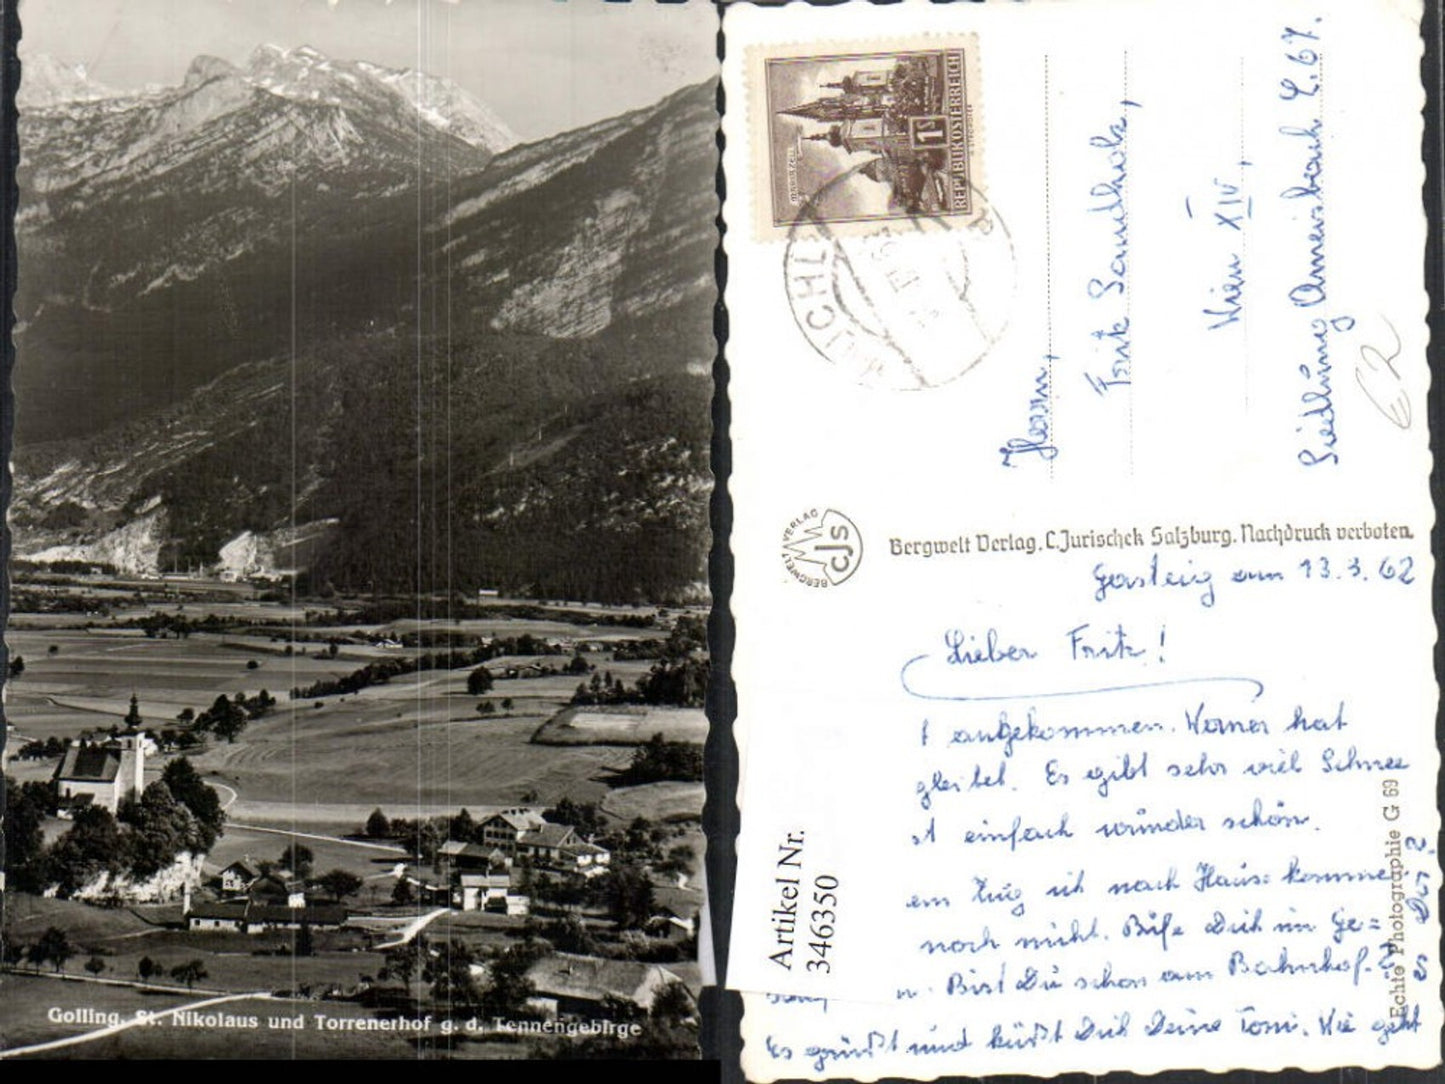 Golling, St. Nikolaus und Torrenerhof g. d. Tennengebirge
MARIAZELL
1 S
REPUBLIK ÖSTERREICH
KUCHL
Herrn,
Fritz Sandholz,
Wien XIV,
Siedlung Ameisbach Z. 67.
€2
BERGWELT VERLAG
CJS
Bergwelt Verlag. C. Jurischek Salzburg. Nachdruck verboten.
am 13.3.62
Lieber Fritz!
angekommen. Werner hat
Es gibt sehr viel Schnee
einfach wunder schön.
Zug ich nach Hause komme
noch nicht. Büße Dich im Ge=
Bist Du schon am Bahnhof.
Es grüßt und küßt Dich Deine Toni. Wie geht
es Dir?
Artikel Nr.
346350
Echte Photographie G 69